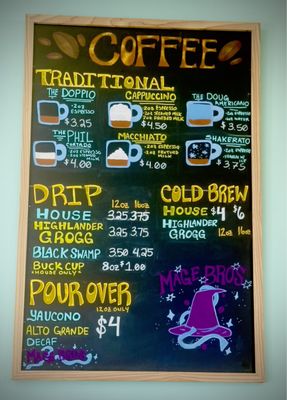 COFFEE
TRADITIONAL
THE DOPPIO
-2OZ ESPRESSO
$3.25
CAPPUCCINO
-2OZ ESPRESSO
$4.50
THE DOUG
AMERICANO
-2OZ ESPRESSO
$3.50
THE PHIL
CORTADO
-2OZ ESPRESSO
$4.00
MACCHIATO
-2OZ ESPRESSO
$4.00
SHAKERATO
ESPRESSO
$3.75
DRIP 12oz 16oz
HOUSE 3.25 3.75
HIGHLANDER
GROGG 3.25 3.75
BLACK SWAMP 3.50 4.25
BUCK CUP 8oz $1.00
*HOUSE ONLY*
COLD BREW
HOUSE $4 $6
HIGHLANDER
GROGG 12oz 16oz
POUR OVER
12OZ ONLY
YAUCONO $4
ALTO GRANDE
DECAF
MAGE BROS
MAGE BROS